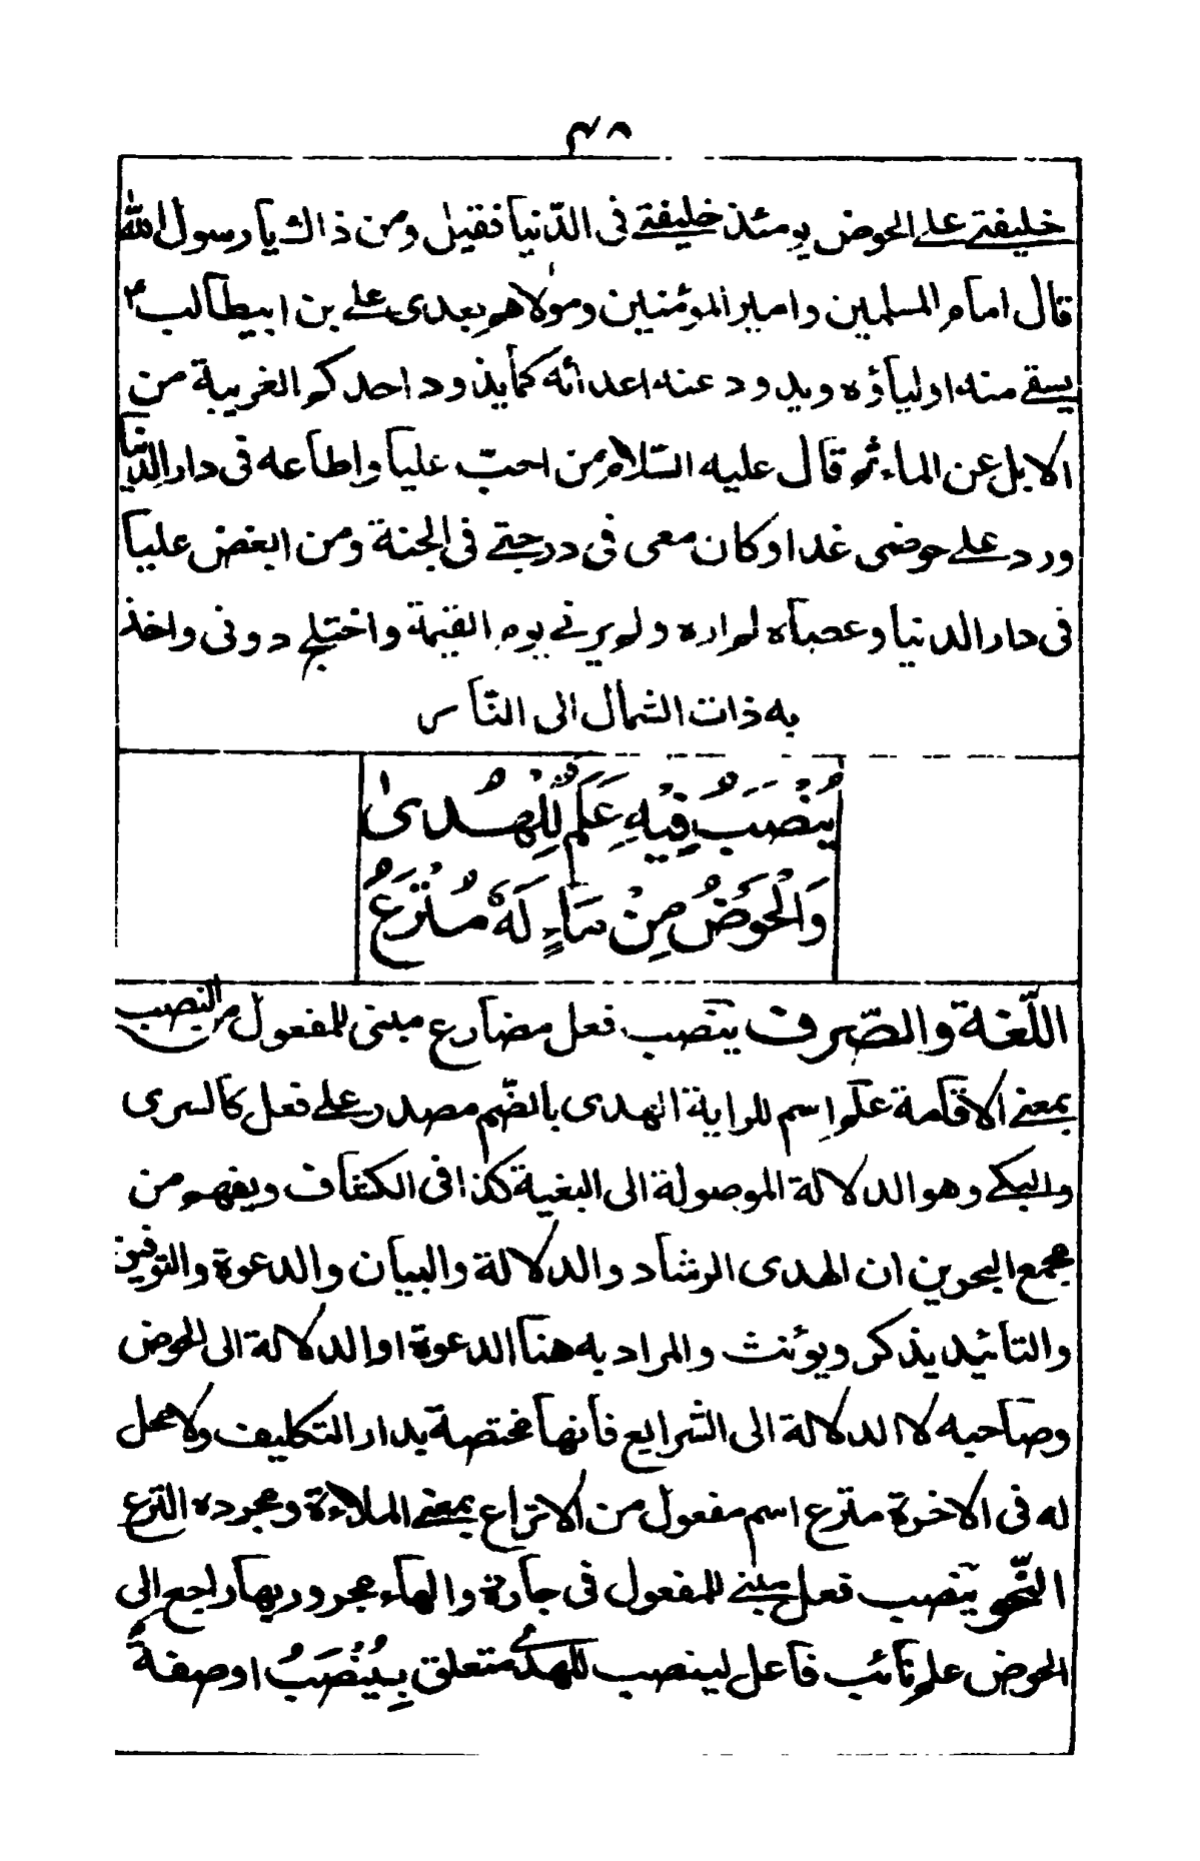 ۴۸
خليفتي على الحوض يومئذ خليفتي فى الدّنيا فقيل ومن ذاك يا رسول الله
قال امام المسلمين وامير المؤمنين ومولاهم بعدى على بن ابيطالب ع
يسقى منه اولياؤه ويدود عنه اعدائه كما يذود احدكم الغريبة من
الابل عن الماء ثم قال عليه السّلام من احبّ عليا واطاعه فى دار الدّنيا
ورد على حوضى غدا وكان معى فى درجتى فى الجنة ومن ابغض عليا
فى دار الدنيا وعصاه لم اره ولم يرنى يوم القيمة واختلج دونى واخذ
به ذات الشمال الى النّاس
يُنْصَبُ فِيْهِ عَلَمٌ لِلْهُدىٰ
وَالْحَوْضُ مِنْ مَاءٍ لَهُ مُتْرَعُ
اللّغة والصّرف ينصب فعل مضارع مبنى للمفعول من النصب
بمعنى الاقامة علم اسم للراية الهدى بالضّم مصدر على فعل كالسرى
والبكى وهو الدلالة الموصولة الى البغية كذا فى الكشاف ويفهم من
مجمع البحرين ان الهدى الرشاد والدلالة والبيان والدعوة والتوفيق
والتائيد يذكر ويؤنث والمراد به هنا الدعوة او الدلالة الى الحوض
وصاحبه لا الدلالة الى الشرايع فانها مختصة بدار التكليف ولا محل
له فى الاخرة مترع اسم مفعول من الاتراع بمعنى الملاءة ومجرده الترع
النّحو ينصب فعل مبنى للمفعول فى جارة والهاء مجرور بها راجع الى
الحوض علم نائب فاعل لينصب للهدى متعلق بِيُنْصَبُ او صفةٌ